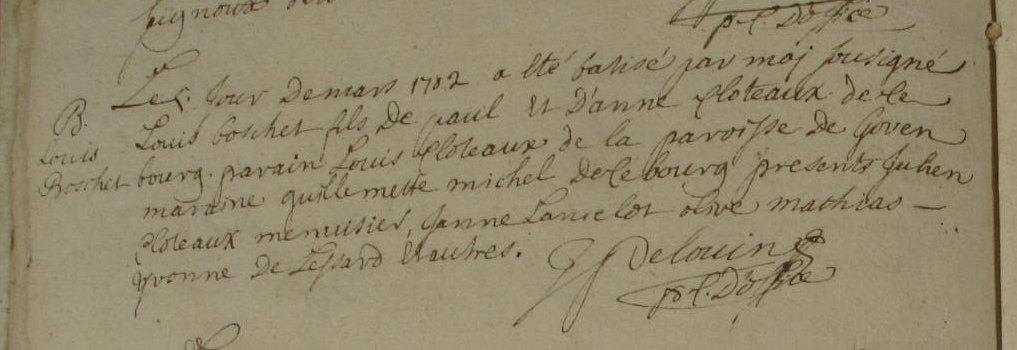 pr. D'office
Le 5. Jour De mars 1702 a êté batisé par moj sousigné
B.
Louis
Boschet
Louis boschet fils De paul Et D'anne Ploteaux de ce
bourg. parain Louis Ploteaux de la paroisse De Goven
maraine guillemette michel De ce bourg presents Julien
Ploteaux menuisier, Janne Lancelot olive mathias —
yvonne De Lessard & autres.
Delouin
pr. D'office